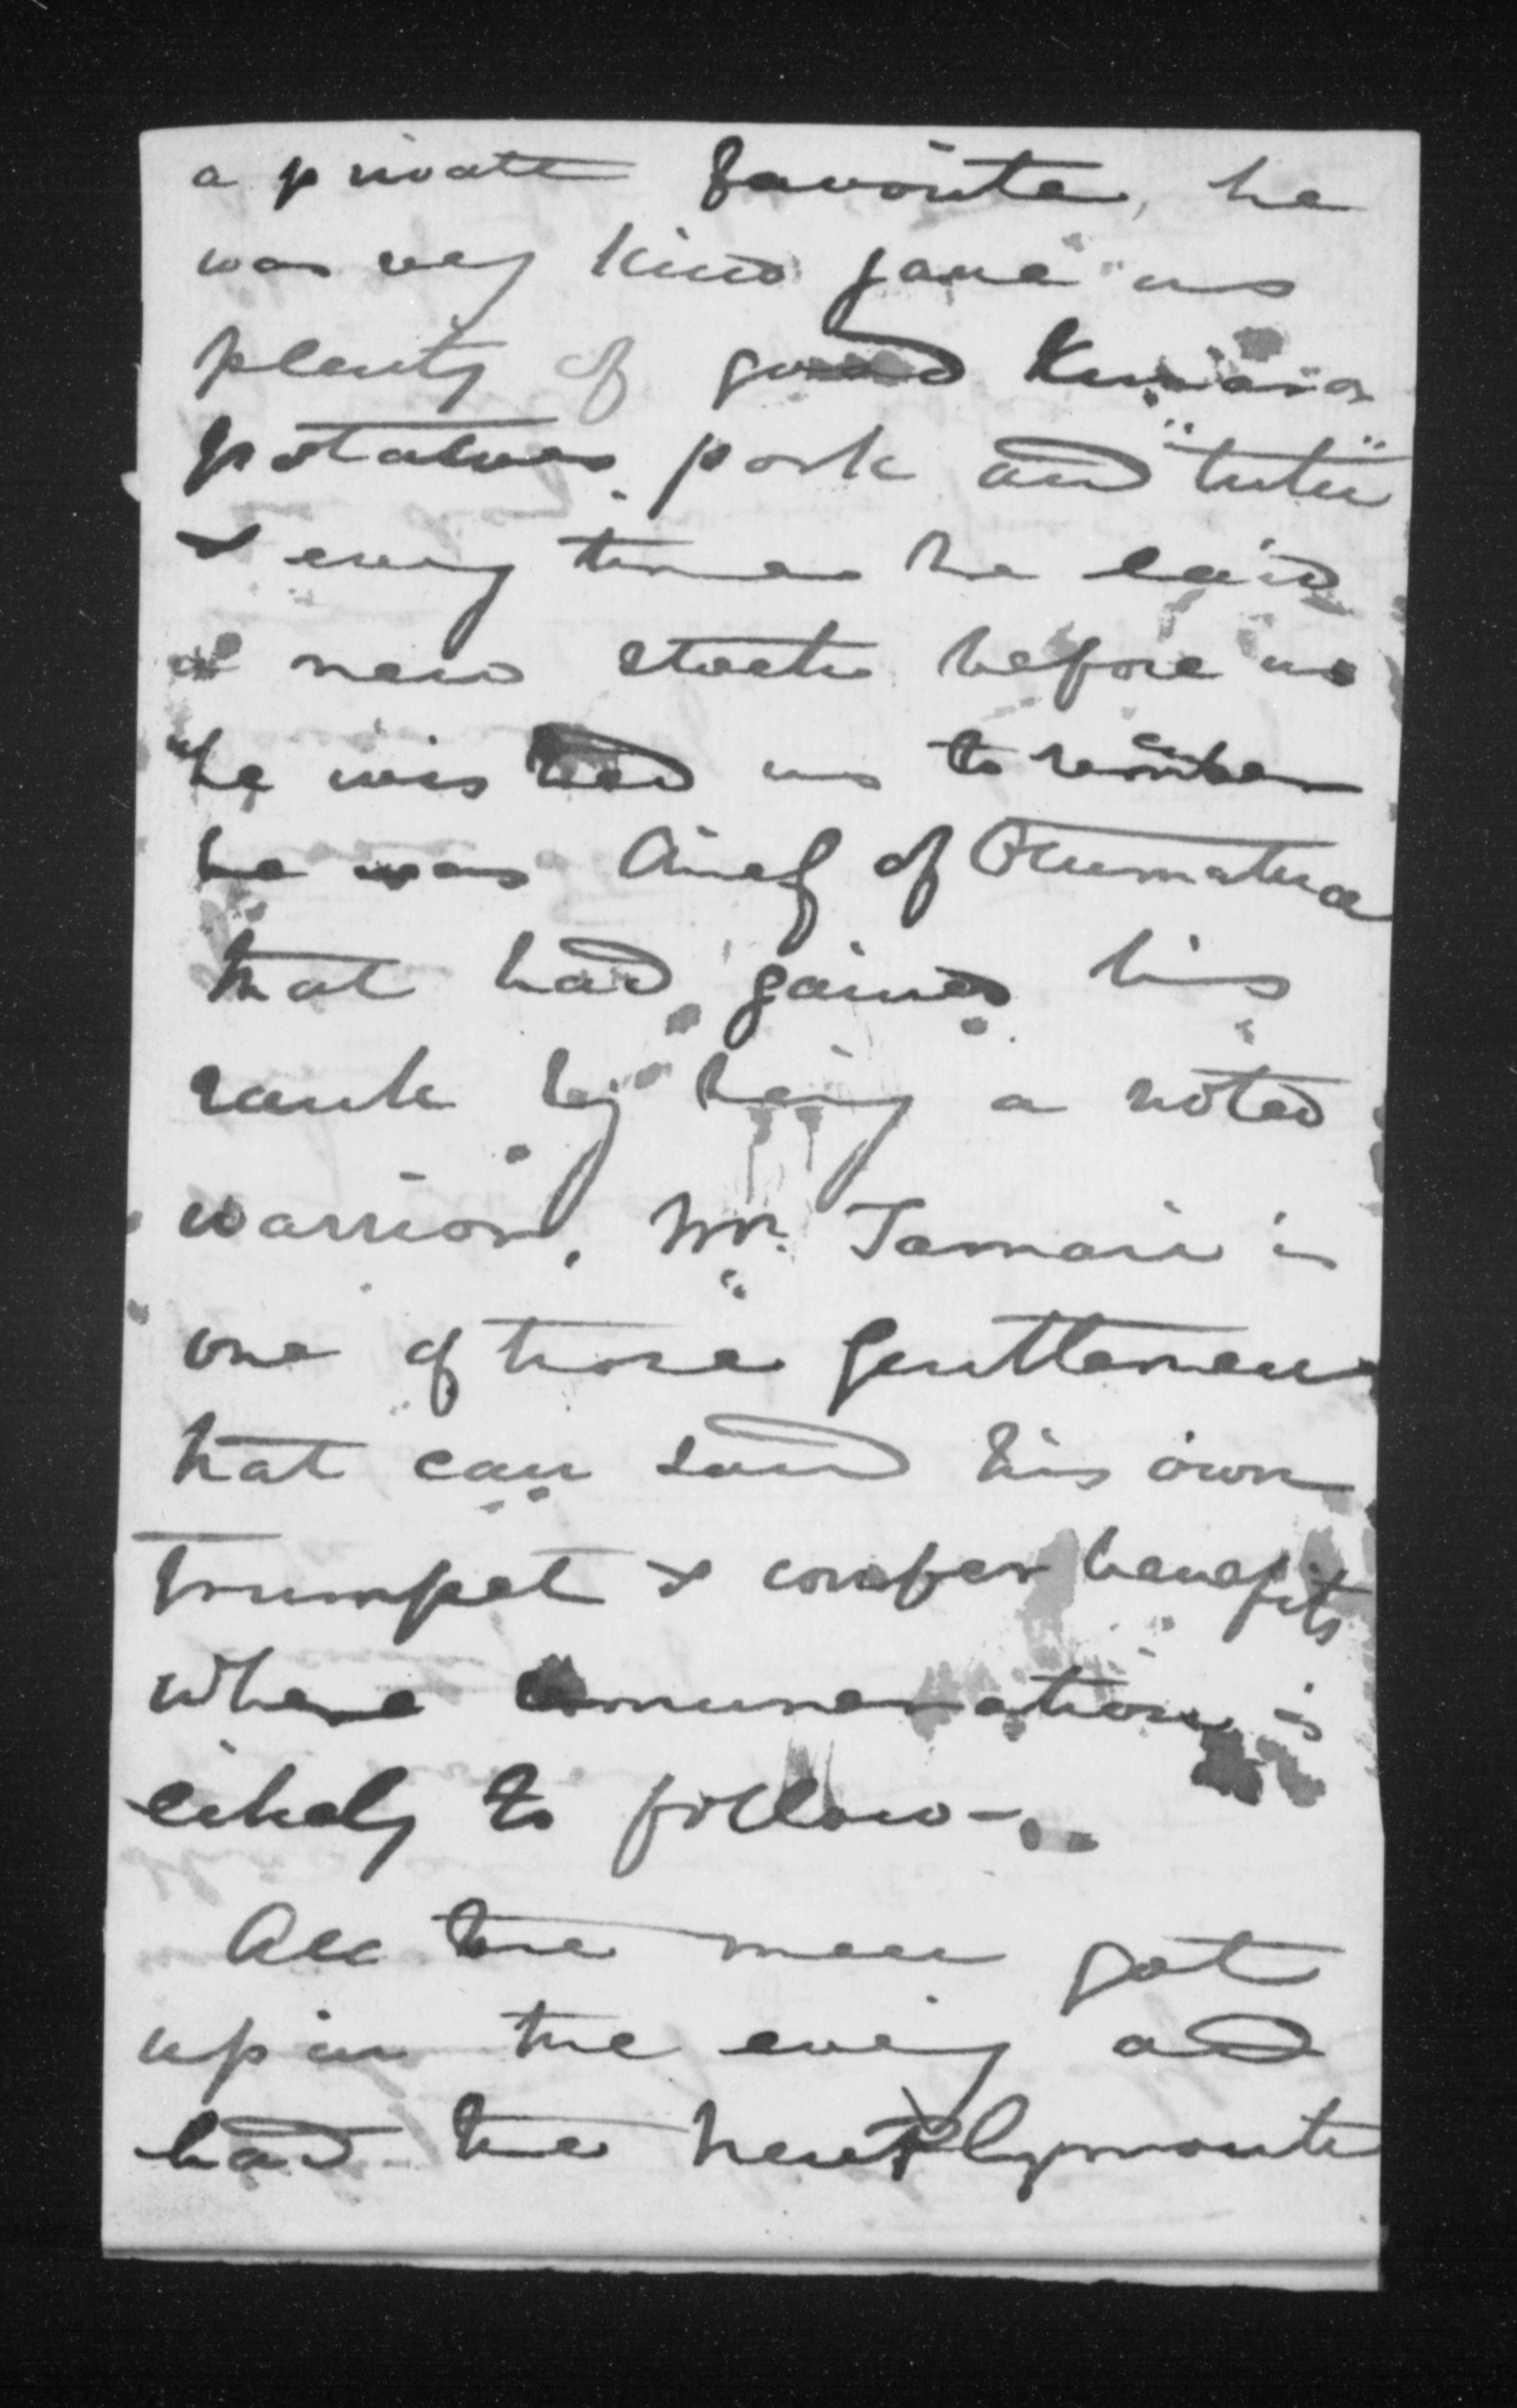 a private favorite, he
was very kind gave us
plenty of good Kumara
potatoes. pork and "tutu"
& every time he laid
a new stock before us
he wished us to remember
he was Chief of
that had gained his
rank by being a noted
warrior. Mr. Tamati is
one of those gentlemen
that can sound his own
trumpet & confer benefits
where remuneration is
likely to follow -
All the men got
up in the evening and
had the New Plymouth